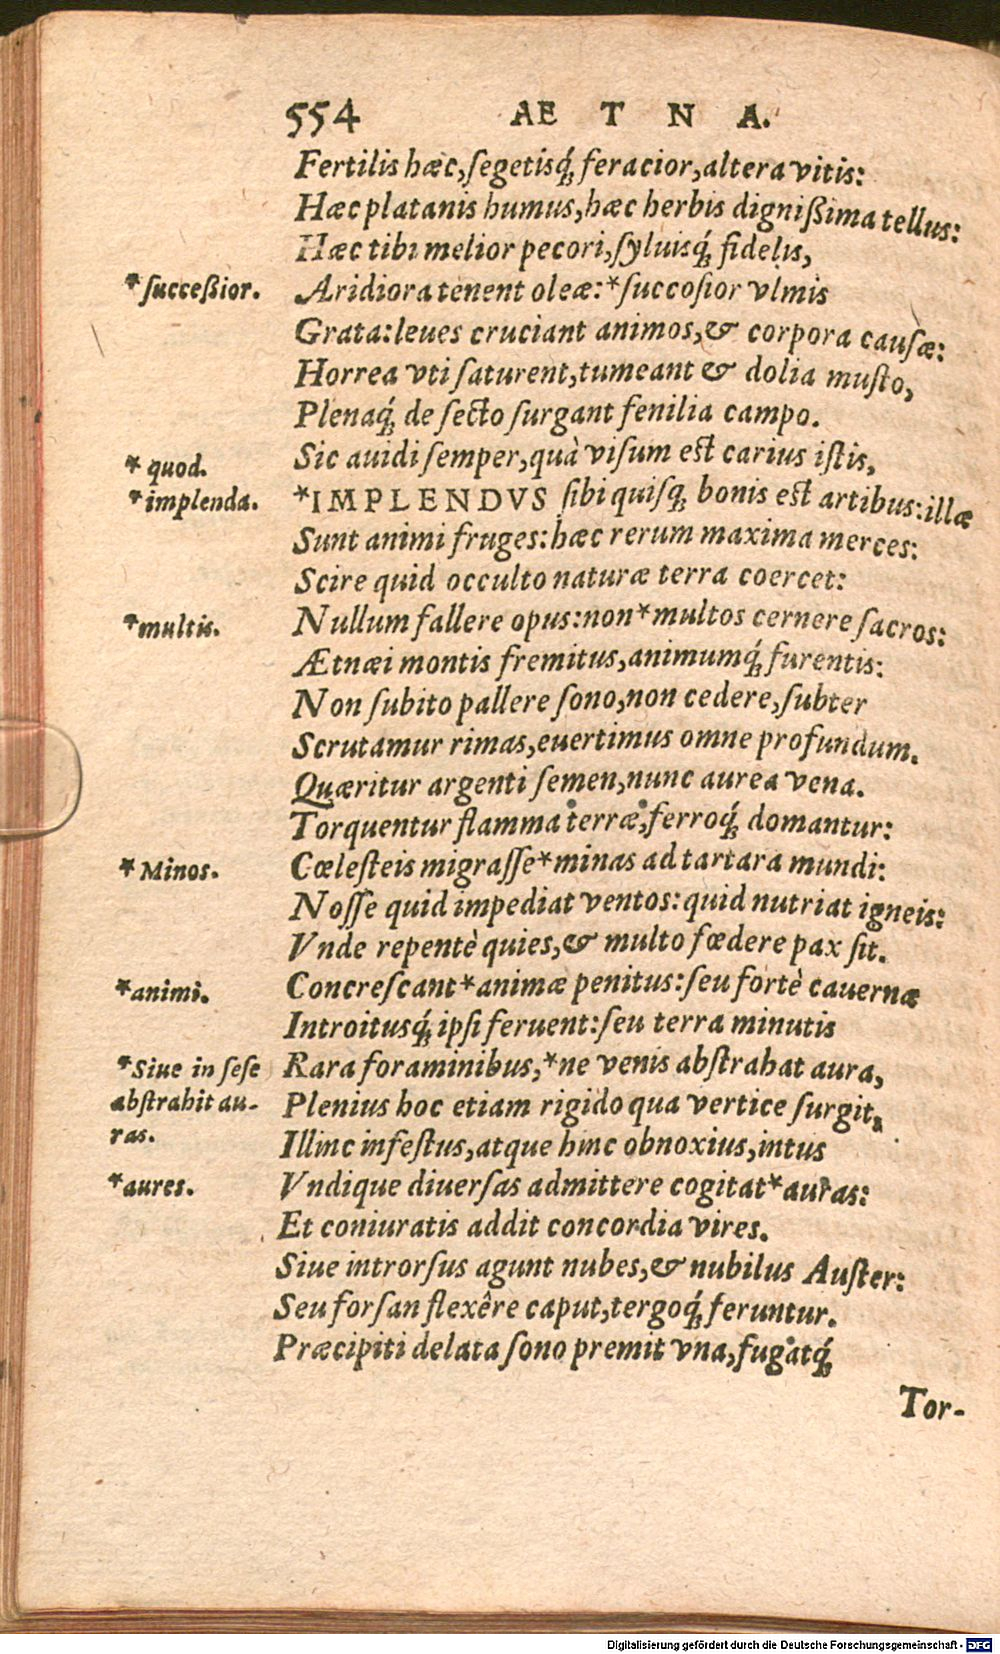 554 AE T N A.
Fertilis hæc, ſegetisq́; feracior, altera vitis:
Hæc platanis humus, hæc herbis digniſſima tellus:
Hæc tibi melior pecori, ſyluisq́; fidelis,
*ſucceſſior.
Aridiora tenent oleæ: *ſuccoſior vlmis
Grata: leues cruciant animos, & corpora cauſæ:
Horrea vti ſaturent, tumeant & dolia muſto,
Plenaq́; de ſecto ſurgant fenilia campo.
Sic auidi ſemper, quà viſum eſt carius iſtis,
*quod.
*implenda.
*IMPLENDVS ſibi quiſq; bonis eſt artibus: illæ
Sunt animi fruges: hæc rerum maxima merces:
Scire quid occulto naturæ terra coercet:
*multis.
Nullum fallere opus: non *multos cernere ſacros:
Ætnæi montis fremitus, animumq́; furentis:
Non ſubito pallere ſono, non cedere, ſubter
Scrutamur rimas, euertimus omne profundum.
Quæritur argenti ſemen, nunc aurea vena.
Torquentur flamma terræ, ferroq́; domantur:
*Minos.
Cœleſteis migraſſe *minas ad tartara mundi:
Noſſe quid impediat ventos: quid nutriat igneis:
Vnde repentè quies, & multo fœdere pax ſit.
*animi.
Concreſcant *animæ penitus: ſeu fortè cauernæ
Introitusq́; ipſi feruent: ſeu terra minutis
*Siue in ſeſe
abſtrahit au-
ras.
Rara foraminibus, *ne venis abſtrahat aura,
Plenius hoc etiam rigido qua vertice ſurgit,
Illinc infeſtus, atque hinc obnoxius, intus
*aures.
Vndique diuerſas admittere cogitat *auras:
Et coniuratis addit concordia vires.
Siue introrſus agunt nubes, & nubilus Auſter:
Seu forſan flexêre caput, tergoq́; feruntur.
Præcipiti delata ſono premit vna, fugatq́;
Tor-
Digitalisierung gefördert durch die Deutsche Forschungsgemeinschaft - DFG